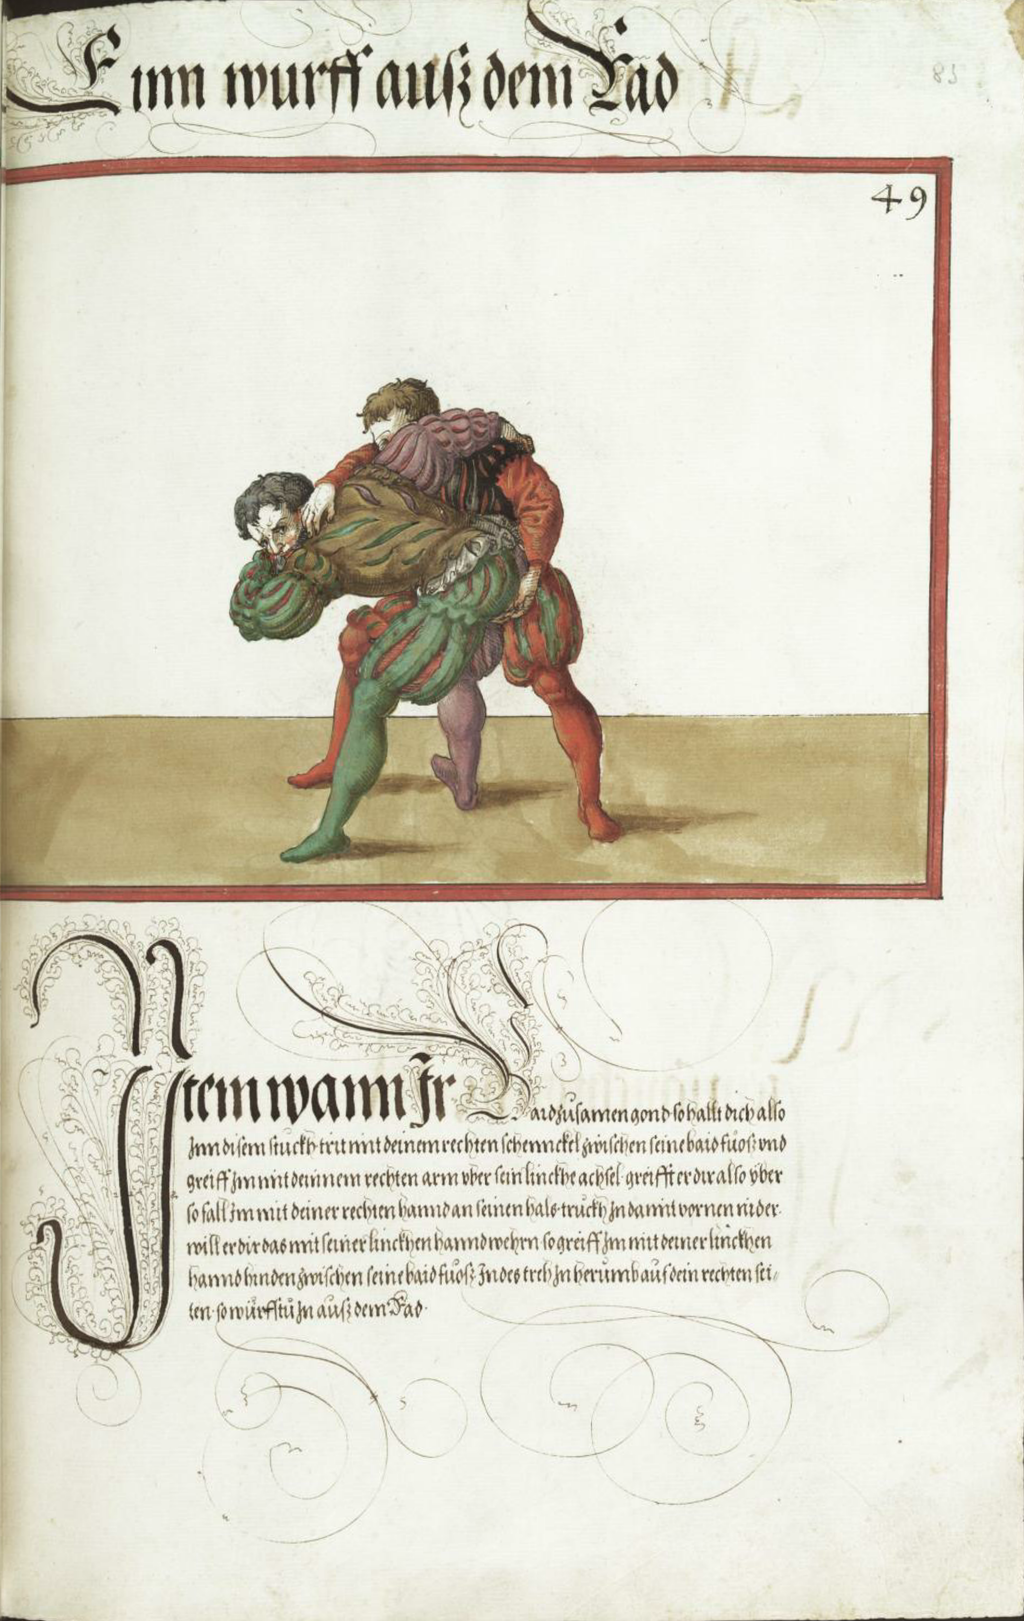 Einn wurff ausz dem Rad
83
49
Item wann Ir
Baid zusamen gond so hallt dich also
Inn disem stuckh trit mit deinem rechten schennckel zwischen seine baid fuosz vnd
greiff Im mit deinnem rechten arm vber sein linckhe achsel greifft er dir also yber
so fall Im mit deiner rechten hannd an seinen hals truckh In damit vornen nider
will er dir das mit seiner linckhen hannd wehrn so greiff Im mit deiner linckhen
hannd hinden zwischen seine baid fuosz Indes treh In herumb auf dein rechten sei
ten so würfstu In ausz dem Rad